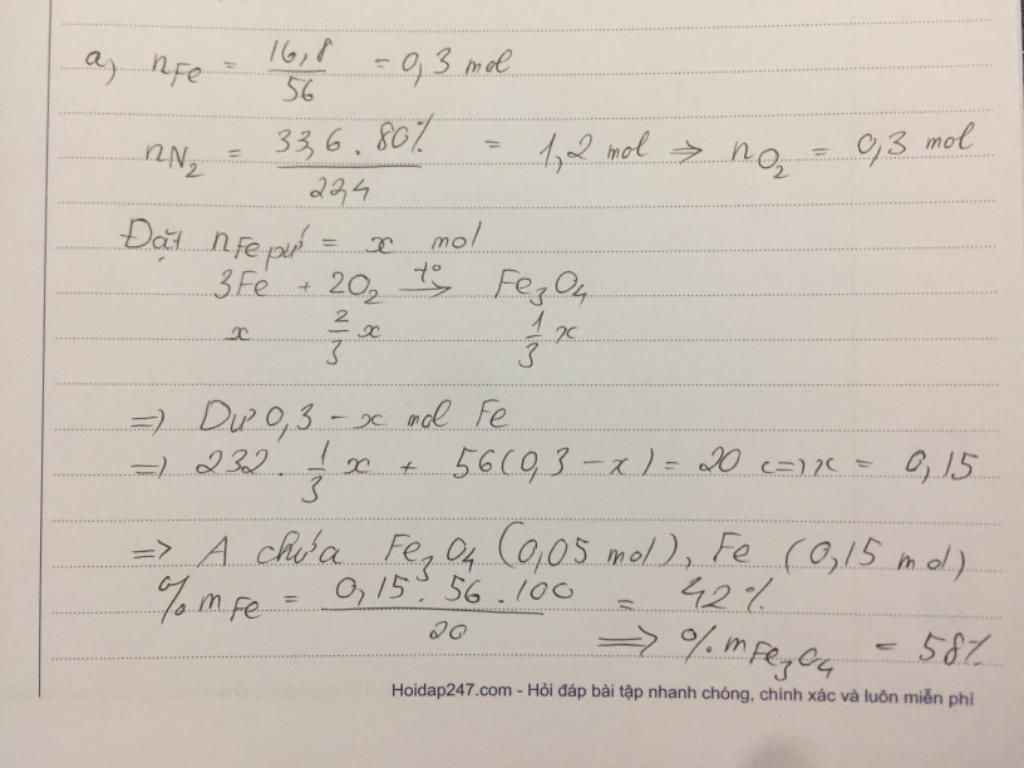 a) nFe = 16,8/56 = 0,3 mol
nN₂ = 33,6 . 80%/22,4 = 1,2 mol ⇒ nO₂ = 0,3 mol
Đặt nFe pứ = x mol
3Fe + 2O₂ –t°→ Fe₃O₄
x 2/3 x 1/3 x
=) Dư 0,3 - x mol Fe
=) 232 . 1/3 x + 56(0,3 - x) = 20 <=> x = 0,15
=> A chứa Fe₃O₄ (0,05 mol), Fe (0,15 mol)
% mFe = 0,15 . 56 . 100/20 = 42%
⇒ % mFe₃O₄ = 58%
Hoidap247.com - Hỏi đáp bài tập nhanh chóng, chính xác và luôn miễn phí